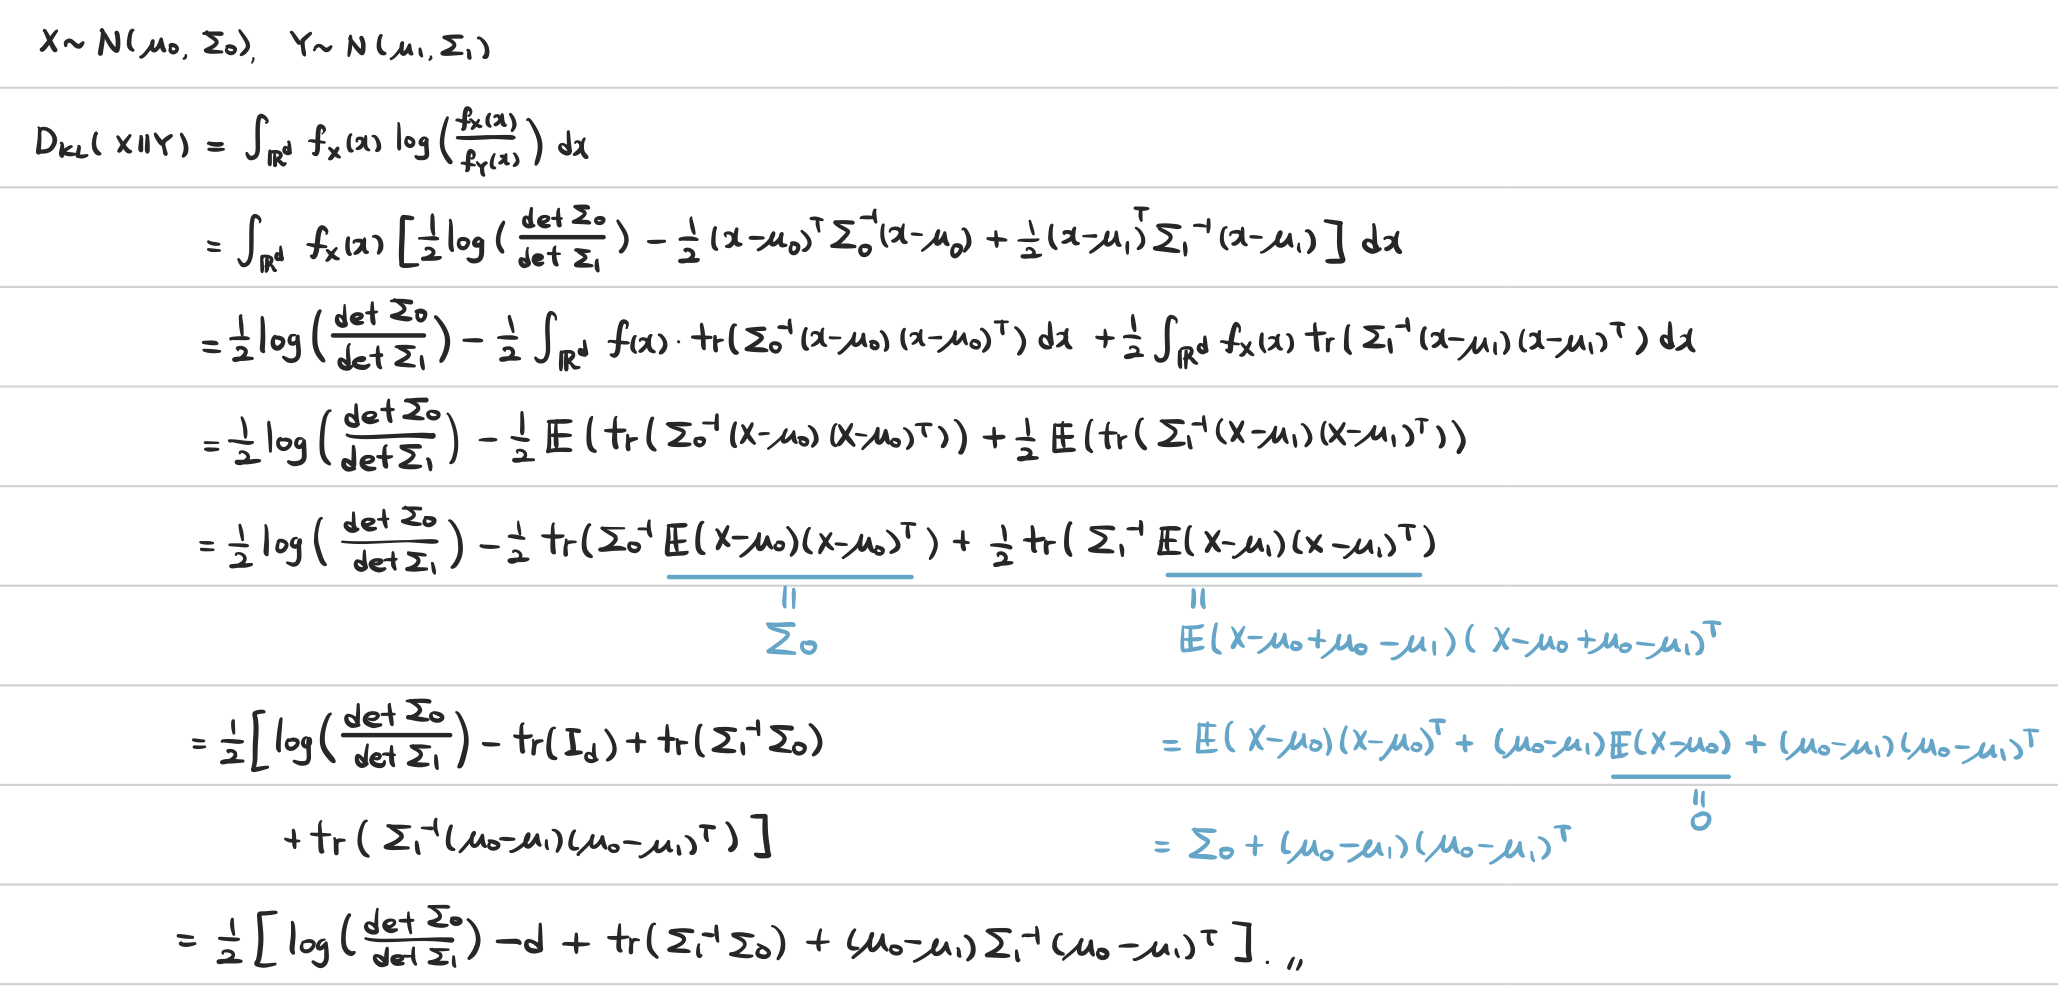 X ~ N(μ₀, Σ₀), Y ~ N(μ₁, Σ₁)
D_KL(X‖Y) = ∫_{ℝ^d} f_X(x) log(f_X(x)/f_Y(x)) dx
= ∫_{ℝ^d} f_X(x) [½ log(det Σ₀/det Σ₁) − ½ (x−μ₀)^T Σ₀^{-1} (x−μ₀) + ½ (x−μ₁)^T Σ₁^{-1} (x−μ₁)] dx
= ½ log(det Σ₀/det Σ₁) − ½ ∫_{ℝ^d} f(x) · tr(Σ₀^{-1} (x−μ₀)(x−μ₀)^T) dx + ½ ∫_{ℝ^d} f_X(x) tr(Σ₁^{-1} (x−μ₁)(x−μ₁)^T) dx
= ½ log(det Σ₀/det Σ₁) − ½ 𝔼(tr(Σ₀^{-1} (X−μ₀)(X−μ₀)^T)) + ½ 𝔼(tr(Σ₁^{-1} (X−μ₁)(X−μ₁)^T))
= ½ log(det Σ₀/det Σ₁) − ½ tr(Σ₀^{-1} 𝔼(X−μ₀)(X−μ₀)^T) + ½ tr(Σ₁^{-1} 𝔼(X−μ₁)(X−μ₁)^T)
= Σ₀
= 𝔼(X−μ₀+μ₀−μ₁)(X−μ₀+μ₀−μ₁)^T
= 𝔼(X−μ₀)(X−μ₀)^T + (μ₀−μ₁)𝔼(X−μ₀) + (μ₀−μ₁)(μ₀−μ₁)^T
= 0
= Σ₀ + (μ₀−μ₁)(μ₀−μ₁)^T
= ½ [log(det Σ₀/det Σ₁) − tr(I_d) + tr(Σ₁^{-1} Σ₀)
+ tr(Σ₁^{-1} (μ₀−μ₁)(μ₀−μ₁)^T)]
= ½ [log(det Σ₀/det Σ₁) − d + tr(Σ₁^{-1} Σ₀) + (μ₀−μ₁) Σ₁^{-1} (μ₀−μ₁)^T]. 〃